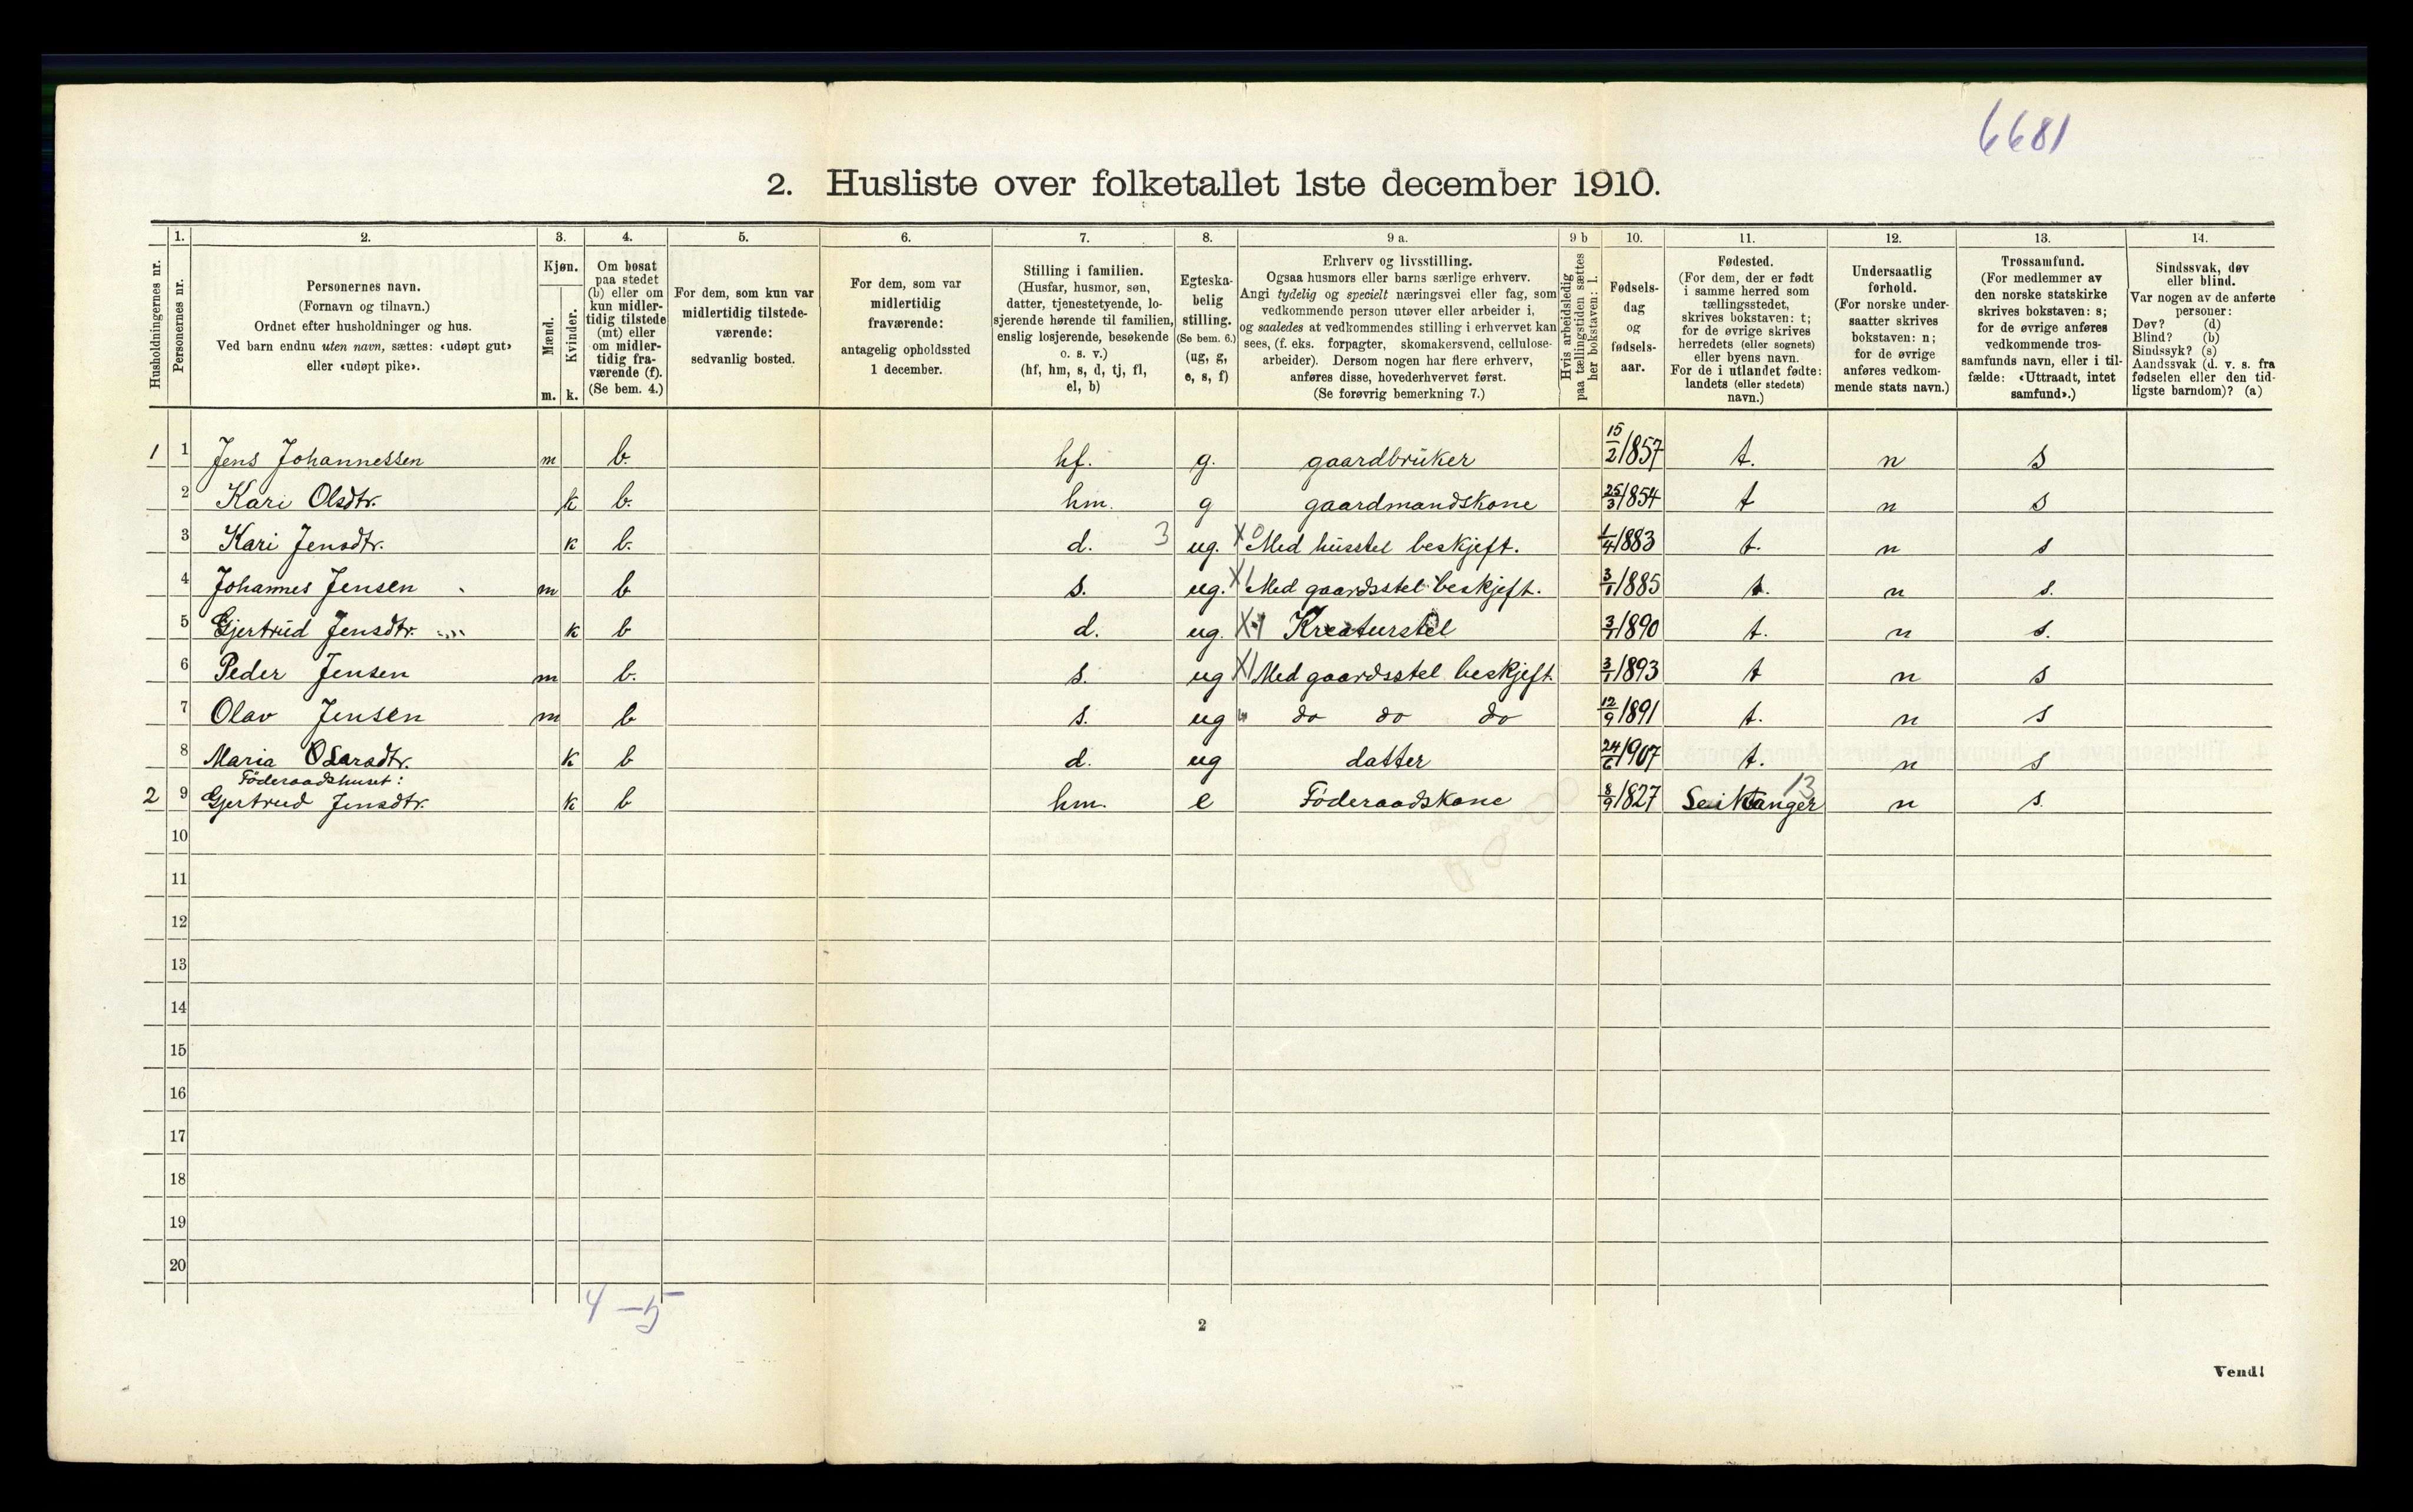 6681
2. Husliste over folketallet 1ste december 1910.
Husholdningernes nr.
1. 2. 3. 4. 5. 6. 7. 8. 9 a. 9 b 10. 11. 12. 13. 14.
Personernes nr.
Personernes navn.
(Fornavn og tilnavn.)
Ordnet efter husholdninger og hus.
Ved barn endnu uten navn, sættes: «udøpt gut»
eller «udøpt pike».
Kjøn.
Mænd.
Kvinder.
m. k.
Om bosat
paa stedet
(b) eller om
kun midler-
tidig tilstede
(mt) eller
om midler-
tidig fra-
værende (f).
(Se bem. 4.)
For dem, som kun var
midlertidig tilstede-
værende:
sedvanlig bosted.
For dem, som var
midlertidig
fraværende:
antagelig opholdssted
1 december.
Stilling i familien.
(Husfar, husmor, søn,
datter, tjenestetyende, lo-
sjerende hørende til familien,
enslig losjerende, besøkende
o. s. v.)
(hf, hm, s, d, tj, fl,
el, b)
Egteska-
belig
stilling.
(Se bem. 6.)
(ug, g,
e, s, f)
Erhverv og livsstilling.
Ogsaa husmors eller barns særlige erhverv.
Angi tydelig og specielt næringsvei eller fag, som
vedkommende person utøver eller arbeider i,
og saaledes at vedkommendes stilling i erhvervet kan
sees, (f. eks. forpagter, skomakersvend, cellulose-
arbeider). Dersom nogen har flere erhverv,
anføres disse, hovederhvervet først.
(Se forøvrig bemerkning 7.)
Hvis arbeidsledig
paa tællingstiden sættes
her bokstaven: l.
Fødsels-
dag
og
fødsels-
aar.
Fødested.
(For dem, der er født
i samme herred som
tællingsstedet,
skrives bokstaven: t;
for de øvrige skrives
herredets (eller sognets)
eller byens navn.
For de i utlandet fødte:
landets (eller stedets)
navn.)
Undersaatlig
forhold.
(For norske under-
saatter skrives
bokstaven: n;
for de øvrige
anføres vedkom-
mende stats navn.)
Trossamfund.
(For medlemmer av
den norske statskirke
skrives bokstaven: s;
for de øvrige anføres
vedkommende tros-
samfunds navn, eller i til-
fælde: «Uttraadt, intet
samfund».)
Sindssvak, døv
eller blind.
Var nogen av de anførte
personer:
Døv? (d)
Blind? (b)
Sindssyk? (s)
Aandssvak (d. v. s. fra
fødselen eller den tid-
ligste barndom)? (a)
1 1 Jens Johannessen m b. hf. g. gaardbrüker 15/2 1857 t. n s
2 Kari Olsdtr. k b. hm. g gaardmandskone 25/3 1854 t n s
3 Kari Jensdtr. k b. d. 3 ug. X0 Med hüsstel beskjeft. 1/4 1883 t. n s
4 Johannes Jensen m b s. ug. X1 Med gaardsstel beskjeft. 3/1 1885 t. n s.
5 Gjertrüd Jensdtr. k b d. ug. X Kreaturstel 3/1 1890 t. n s.
6 Peder Jensen m b. s. ug X1 Med gaardsstel beskjeft. 3/1 1893 t n s
7 Olav Jensen m b s. ug do do do 12/9 1891 t. n s
8 Maria Odarsdtr. k b d. ug datter 24/6 1907 t. n s
Föderaadshuset:
2 9 Gjertrud Jensdtr. k b hm. e Föderaadskone 8/9 1827 Seiktanger 13 n s.
10
11
12
13
14
15
16
17
18
19
20
4 – 5
2
Vend!